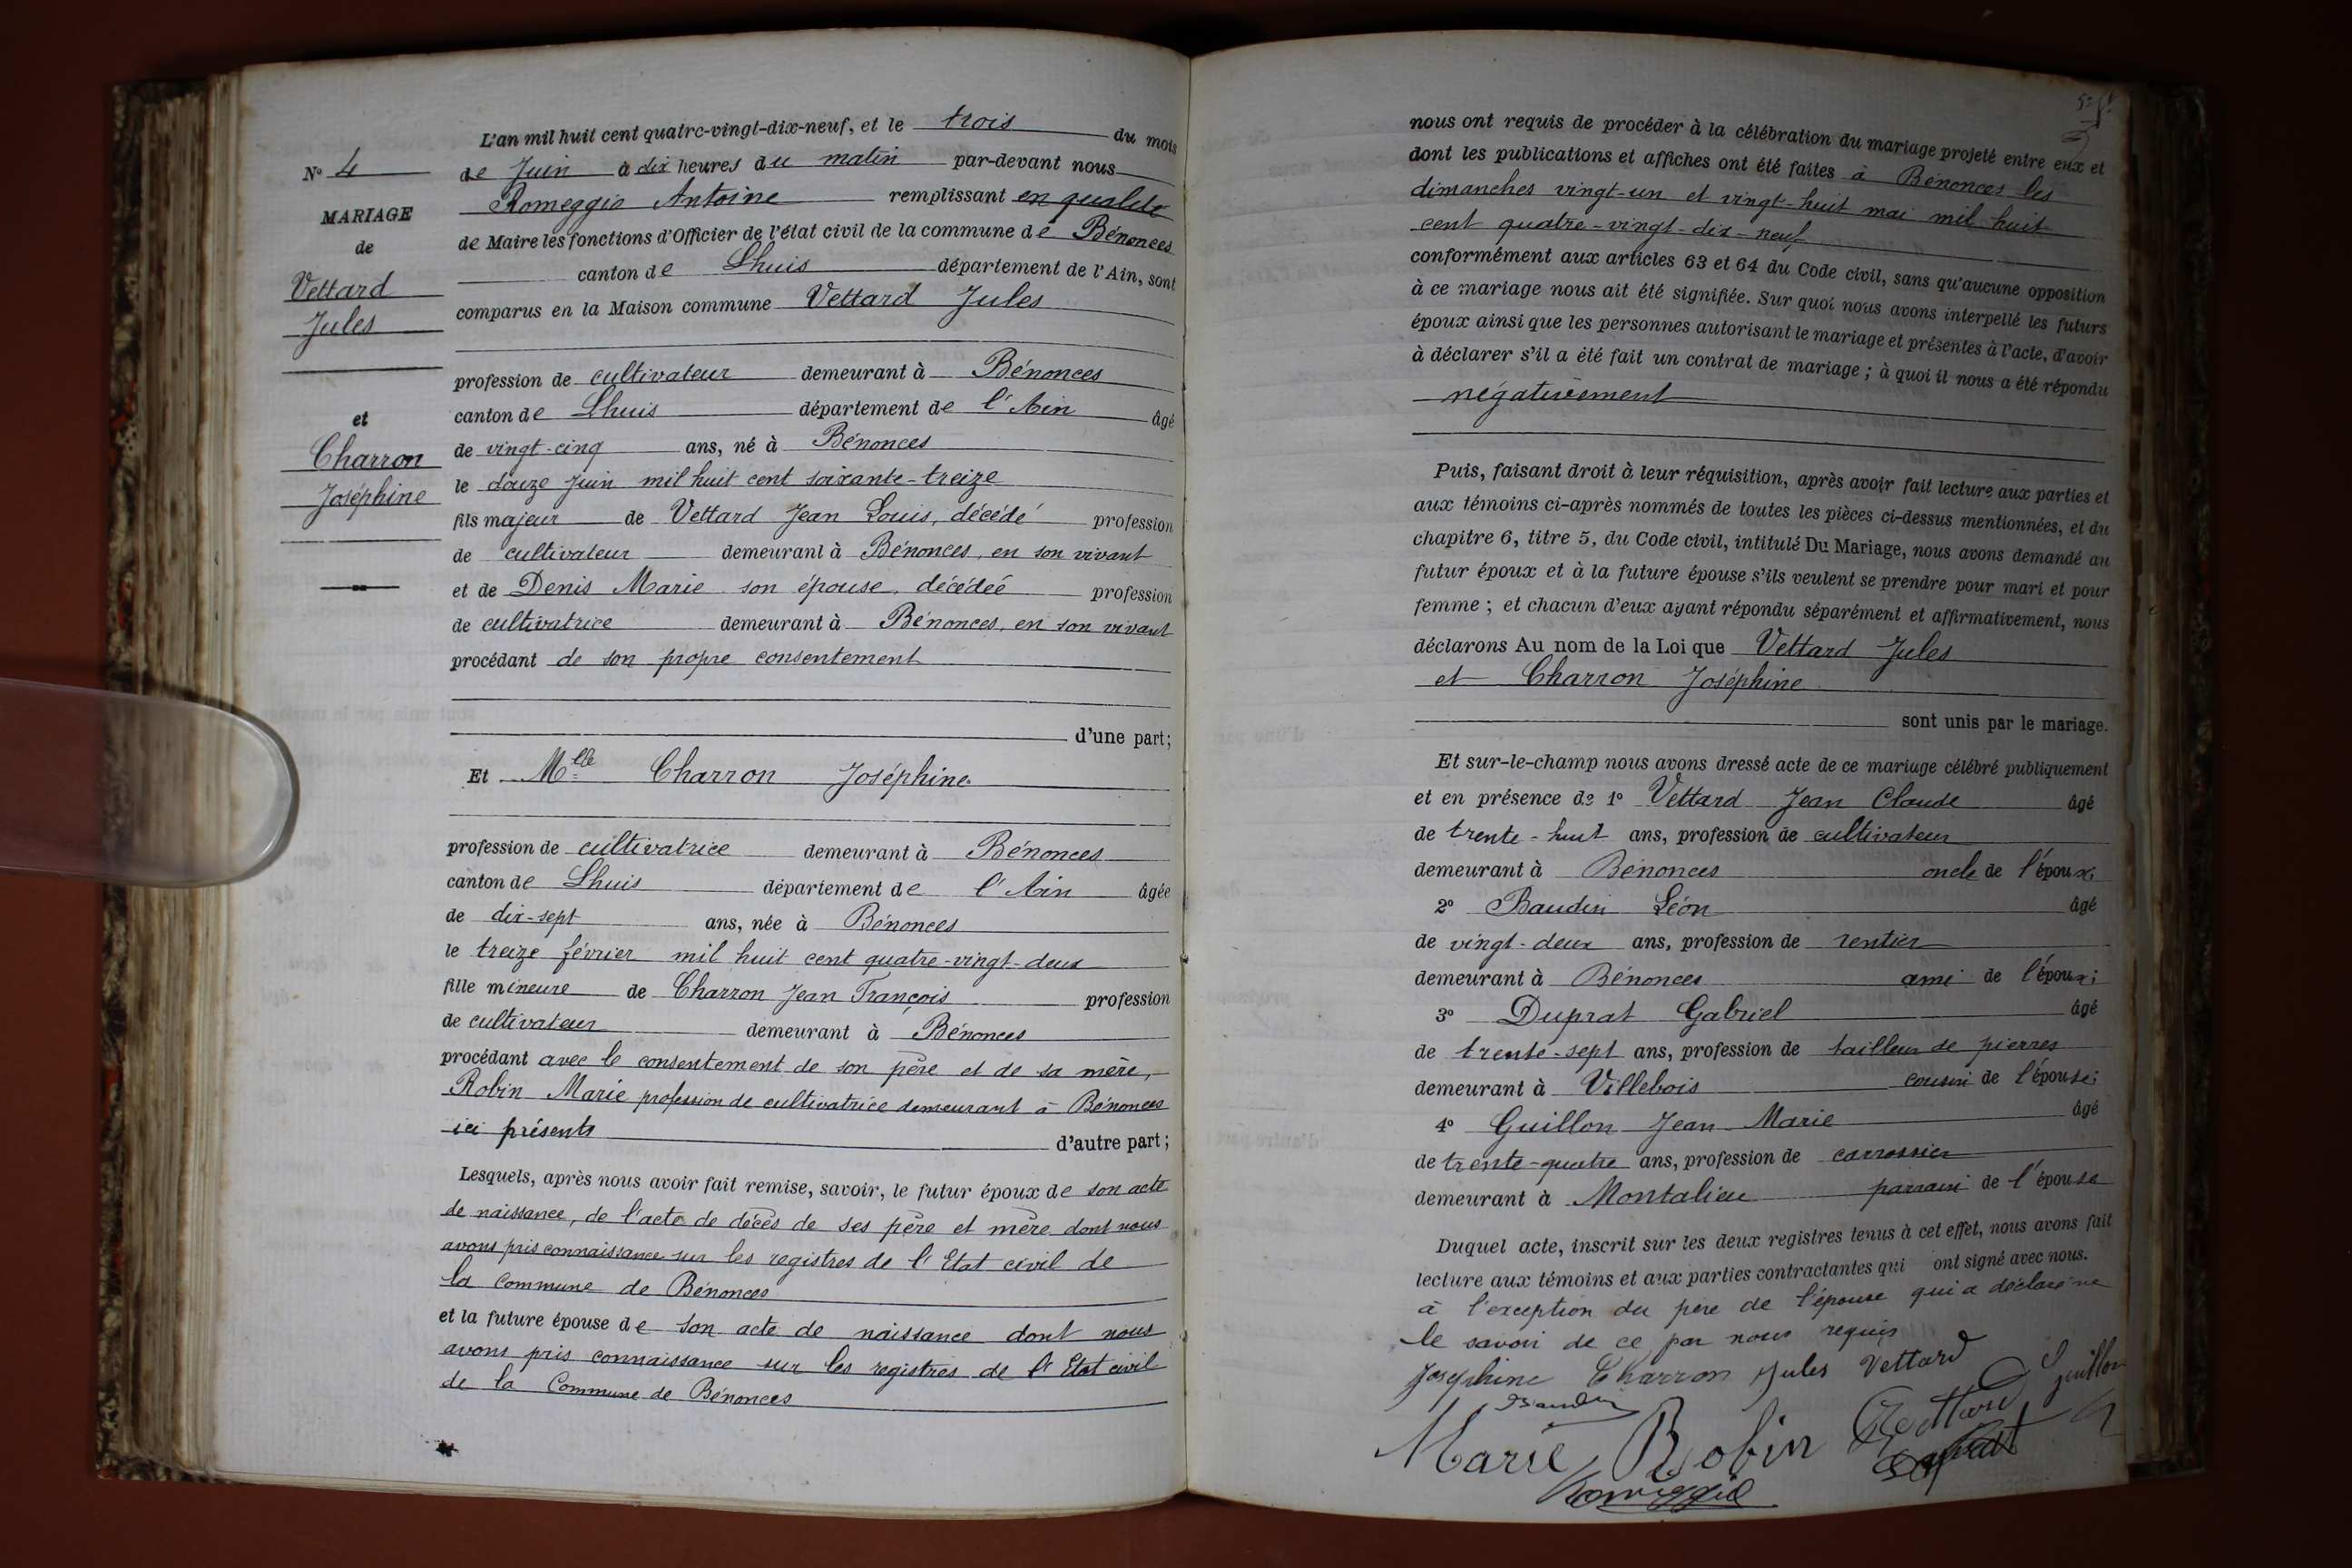 L'an mil huit cent quatre-vingt-dix-neuf, et le trois du mois
de Juin à dix heures du matin par-devant nous
Romeggio Antoine remplissant en qualité
de Maire les fonctions d'Officier de l'état civil de la commune de Bénonces
canton de Lhuis département de l'Ain, sont
comparus en la Maison commune Vettard Jules
profession de cultivateur demeurant à Bénonces
canton de Lhuis département de l'Ain âgé
de vingt-cinq ans, né à Bénonces
le douze juin mil huit cent soixante-treize
fils majeur de Vettard Jean Louis, décédé profession
de cultivateur demeurant à Bénonces, en son vivant
et de Denis Marie son épouse, décédée profession
de cultivatrice demeurant à Bénonces, en son vivant
procédant de son propre consentement
d'une part;
Et Mlle Charron Joséphine
profession de cultivatrice demeurant à Bénonces
canton de Lhuis département de l'Ain âgée
de dix-sept ans, née à Bénonces
le treize février mil huit cent quatre-vingt-deux
fille mineure de Charron Jean François profession
de cultivateur demeurant à Bénonces
procédant avec le consentement de son père et de sa mère,
Robin Marie profession de cultivatrice demeurant à Bénonces
ici présents d'autre part;
Lesquels, après nous avoir fait remise, savoir, le futur époux de son acte
de naissance, de l'acte de décès de ses père et mère dont nous
avons pris connaissance sur les registres de l'Etat civil de
la commune de Bénonces
et la future épouse de son acte de naissance dont nous
avons pris connaissance sur les registres de l'Etat civil
de la Commune de Bénonces
N° 4
MARIAGE
de
Vettard
Jules
et
Charron
Joséphine
nous ont requis de procéder à la célébration du mariage projeté entre eux et
dont les publications et affiches ont été faites à Bénonces les
dimanches vingt-un et vingt-huit mai mil huit
cent quatre-vingt-dix-neuf
conformément aux articles 63 et 64 du Code civil, sans qu'aucune opposition
à ce mariage nous ait été signifiée. Sur quoi nous avons interpellé les futurs
époux ainsi que les personnes autorisant le mariage et présentes à l'acte, d'avoir
à déclarer s'il a été fait un contrat de mariage; à quoi il nous a été répondu
négativement
Puis, faisant droit à leur réquisition, après avoir fait lecture aux parties et
aux témoins ci-après nommés de toutes les pièces ci-dessus mentionnées, et du
chapitre 6, titre 5, du Code civil, intitulé Du Mariage, nous avons demandé au
futur époux et à la future épouse s'ils veulent se prendre pour mari et pour
femme; et chacun d'eux ayant répondu séparément et affirmativement, nous
déclarons Au nom de la Loi que Vettard Jules
et Charron Joséphine
sont unis par le mariage.
Et sur-le-champ nous avons dressé acte de ce mariage célébré publiquement
et en présence de 1° Vettard Jean Claude âgé
de trente-huit ans, profession de cultivateur
demeurant à Bénonces oncle de l'époux;
2° Baudin Léon âgé
de vingt-deux ans, profession de rentier
demeurant à Bénonces ami de l'époux;
3° Duprat Gabriel âgé
de trente-sept ans, profession de tailleur de pierres
demeurant à Villebois cousin de l'épouse;
4° Guillon Jean-Marie âgé
de trente-quatre ans, profession de carrossier
demeurant à Montalieu parrain de l'épouse
Duquel acte, inscrit sur les deux registres tenus à cet effet, nous avons fait
lecture aux témoins et aux parties contractantes qui ont signé avec nous.
à l'exception du père de l'épouse qui a déclaré ne
le savoir de ce par nous requis
Joséphine Charron Jules Vettard Guillon
Baudin Vettard
Marie Robin Duprat
Romeggio